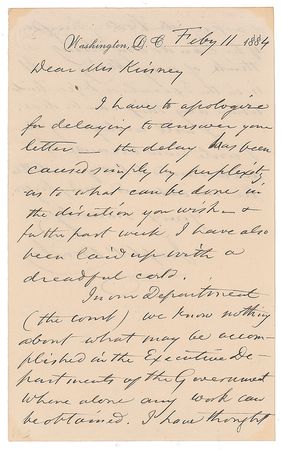 Washington, D. C. Feby 11 1884
Dear Mrs Kinney
I have to apologize
for delaying to answer your
letter — the delay has been
caused simply by perplexity
as to what can be done in
the direction you wish — &
for the past week I have also
been laid up with a
dreadful cold.
In our Department
(the court) we know nothing
about what may be accom-
plished in the Executive De-
partments of the Government
where alone any work can
be obtained. I have thought